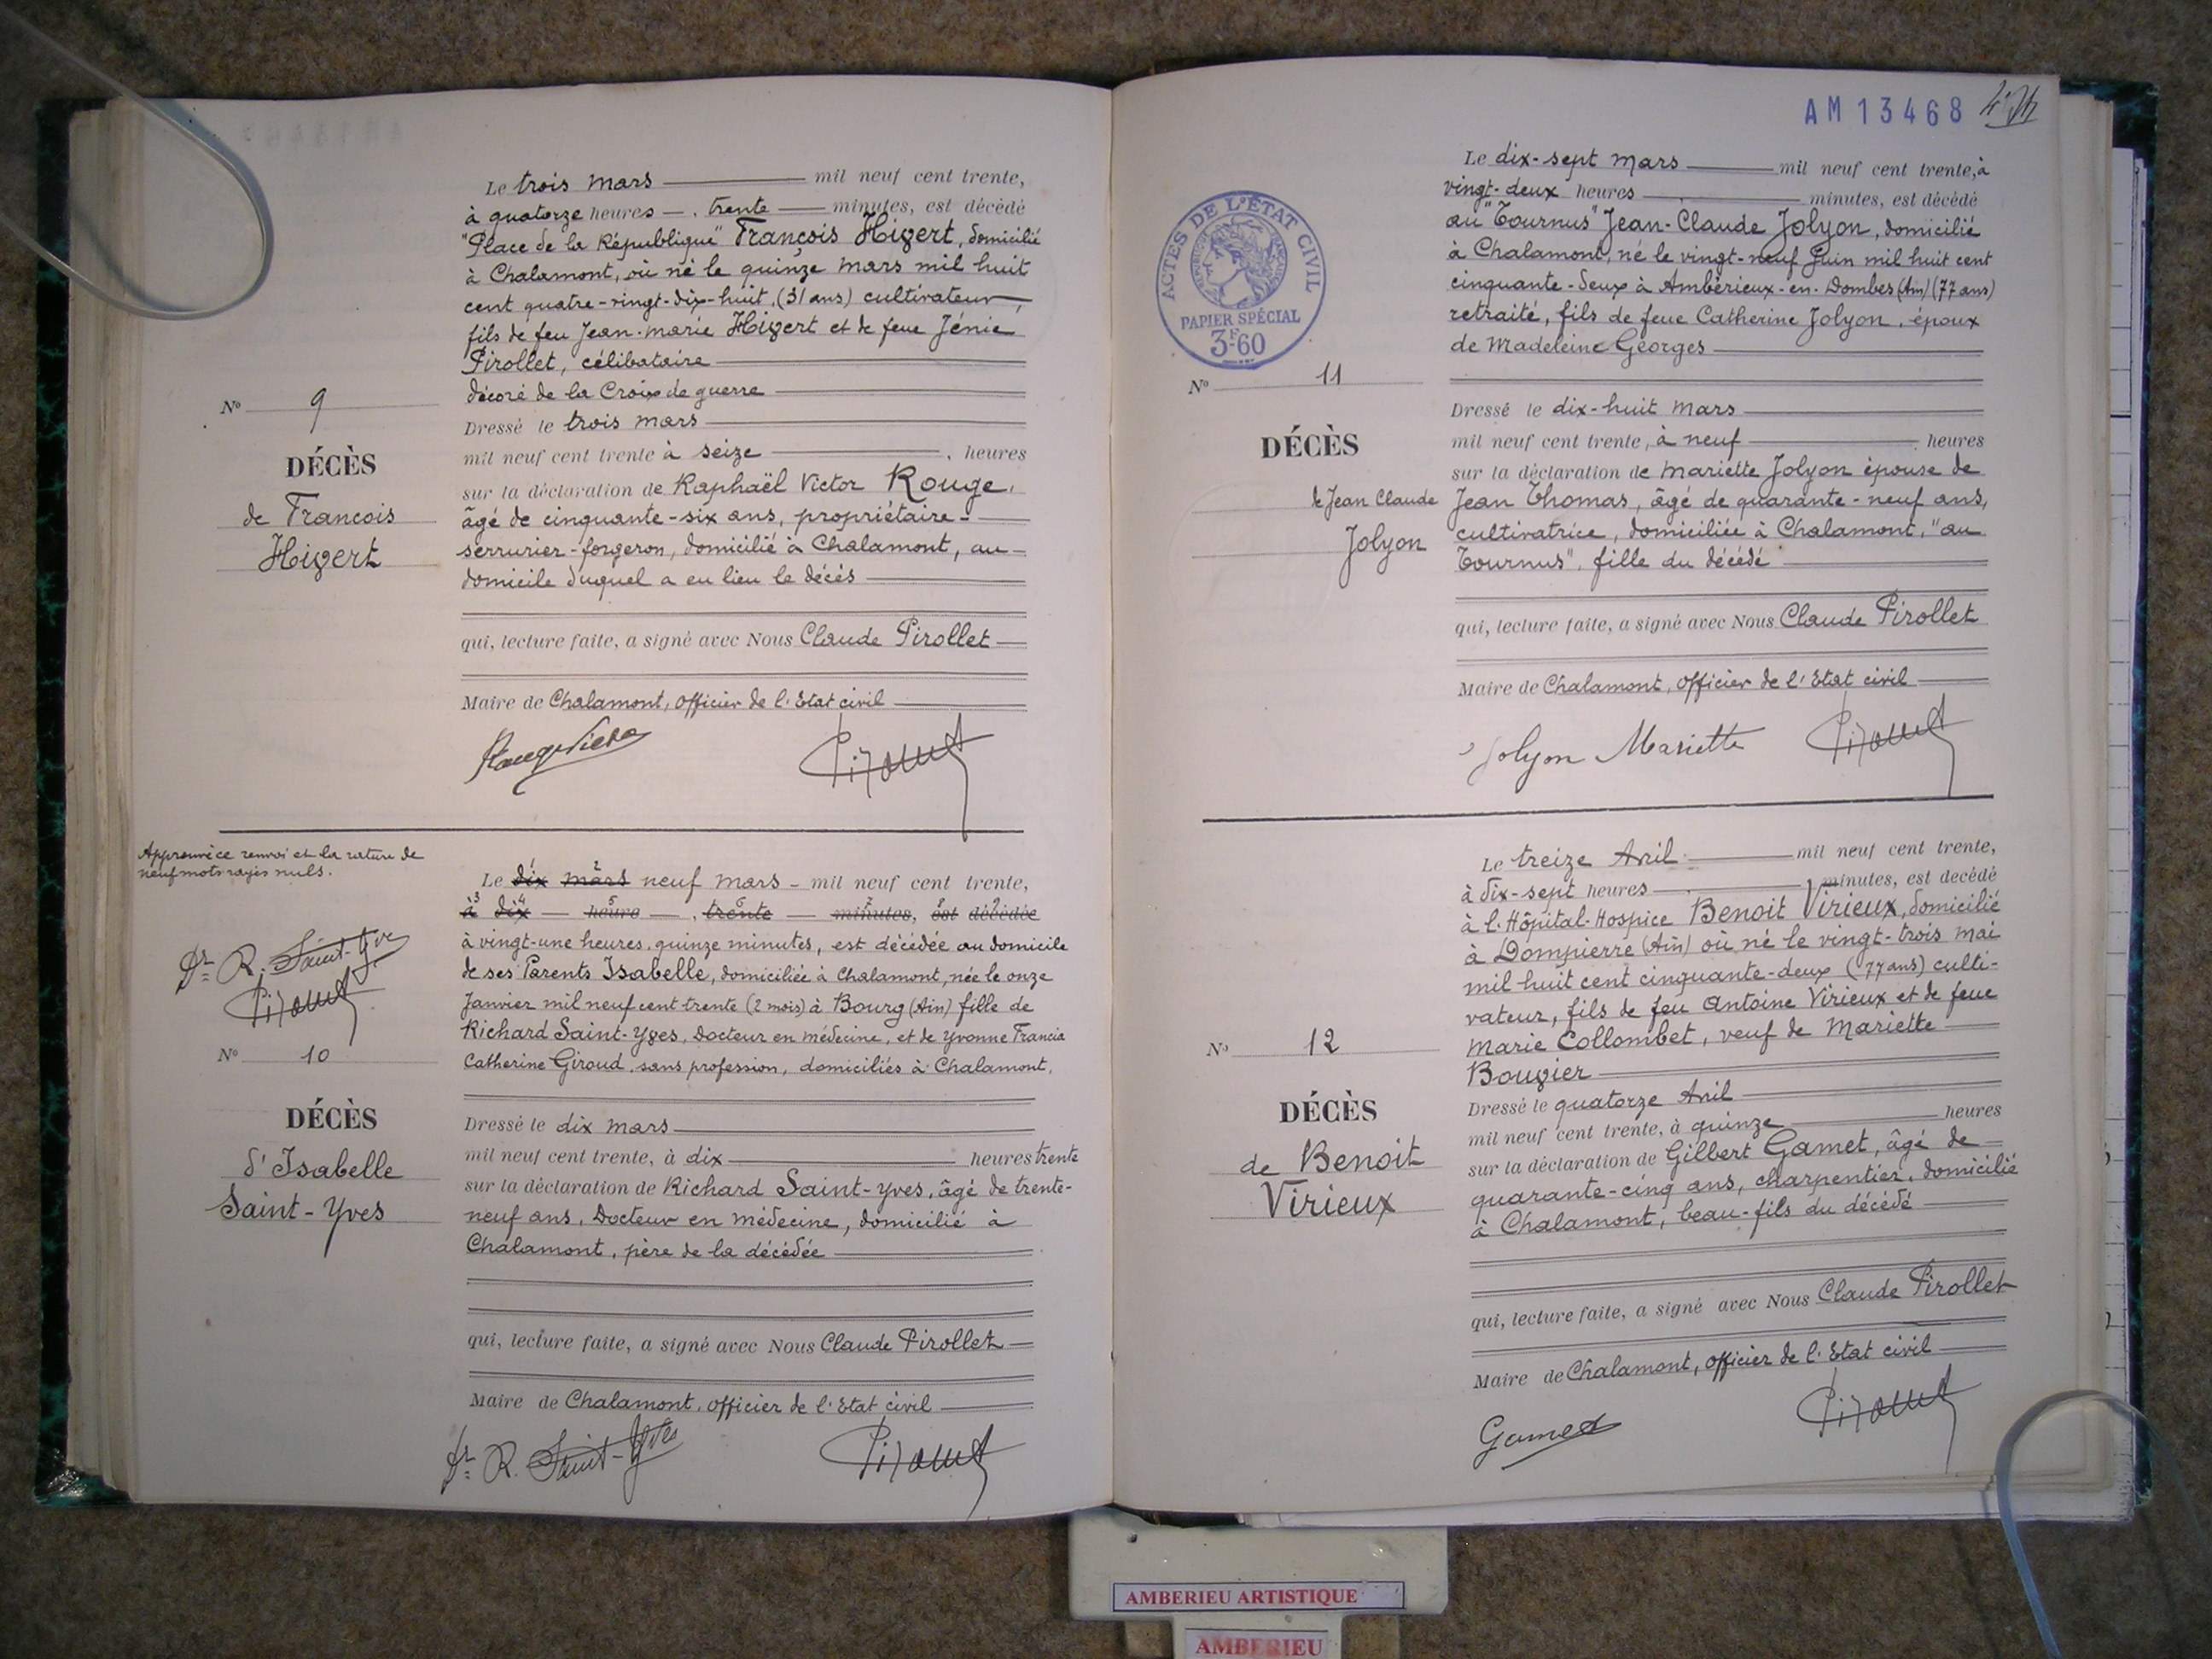 Le trois mars mil neuf cent trente,
à quatorze heures trente minutes, est décédé
"Place de la République" François Higert, domicilié
à Chalamont, où né le quinze mars mil huit
cent quatre-vingt-dix-huit, (31 ans) cultivateur,
fils de feu Jean-Marie Higert et de feue Jénie
Pirollet, célibataire
décoré de la Croix de guerre
Dressé le trois mars
mil neuf cent trente à seize heures
sur la déclaration de Raphaël Victor Rouge,
âgé de cinquante-six ans, propriétaire-
serrurier-forgeron, domicilié à Chalamont, au-
domicile duquel a eu lieu le décès
qui, lecture faite, a signé avec Nous Claude Pirollet
Maire de Chalamont, officier de l'Etat civil
No 9
DÉCÈS
de François
Higert
Approuvé ce renvoi et la rature de
neuf mots rayés nuls.
Dr R. Saint-Yves
Pirollet
No 10
DÉCÈS
d'Isabelle
Saint-Yves
Le dix mars neuf mars - mil neuf cent trente,
à dix heure trente minutes, est décédée
à vingt-une heures, quinze minutes, est décédée au domicile
de ses Parents Isabelle, domiciliée à Chalamont, née le onze
Janvier mil neuf cent trente (2 mois) à Bourg (Ain) fille de
Richard Saint-Yves, Docteur en médecine, et de Yvonne Francia
Catherine Giroud, sans profession, domiciliés à Chalamont.
Dressé le dix mars
mil neuf cent trente, à dix heures trente
sur la déclaration de Richard Saint-Yves, âgé de trente-
neuf ans, Docteur en médecine, domicilié à
Chalamont, père de la décédée
qui, lecture faite, a signé avec Nous Claude Pirollet
Maire de Chalamont, officier de l'Etat civil
Dr R. Saint-Yves Pirollet
AM 13468
ACTES DE L'ÉTAT CIVIL
PAPIER SPÉCIAL
3F60
No 11
DÉCÈS
de Jean Claude
Jolyon
Le dix-sept mars mil neuf cent trente, à
vingt-deux heures minutes, est décédé
au "Tournus" Jean-Claude Jolyon, domicilié
à Chalamont, né le vingt-neuf Juin mil huit cent
cinquante-deux à Ambérieux-en-Dombes (Ain) (77 ans)
retraité, fils de feue Catherine Jolyon, époux
de Madeleine Georges
Dressé le dix-huit mars
mil neuf cent trente, à neuf heures
sur la déclaration de Mariette Jolyon épouse de
Jean Thomas, âgé de quarante-neuf ans,
cultivatrice, domiciliée à Chalamont, "au
Tournus", fille du décédé
qui, lecture faite, a signé avec Nous Claude Pirollet
Maire de Chalamont, officier de l'Etat civil
Jolyon Mariette Pirollet
No 12
DÉCÈS
de Benoit
Virieux
Le treize Avril mil neuf cent trente,
à dix-sept heures minutes, est decédé
à l'Hôpital-Hospice Benoit Virieux, domicilié
à Dompierre (Ain) où né le vingt-trois mai
mil huit cent cinquante-deux (77 ans) culti-
vateur, fils de feu Antoine Virieux et de feue
Marie Collombet, veuf de Mariette
Bouvier
Dressé le quatorze Avril
mil neuf cent trente, à quinze heures
sur la déclaration de Gilbert Gamet, âgé de
quarante-cinq ans, charpentier, domicilié
à Chalamont, beau-fils du décédé
qui, lecture faite, a signé avec Nous Claude Pirollet
Maire de Chalamont, officier de l'Etat civil
Gamet Pirollet
AMBERIEU ARTISTIQUE
AMBERIEU